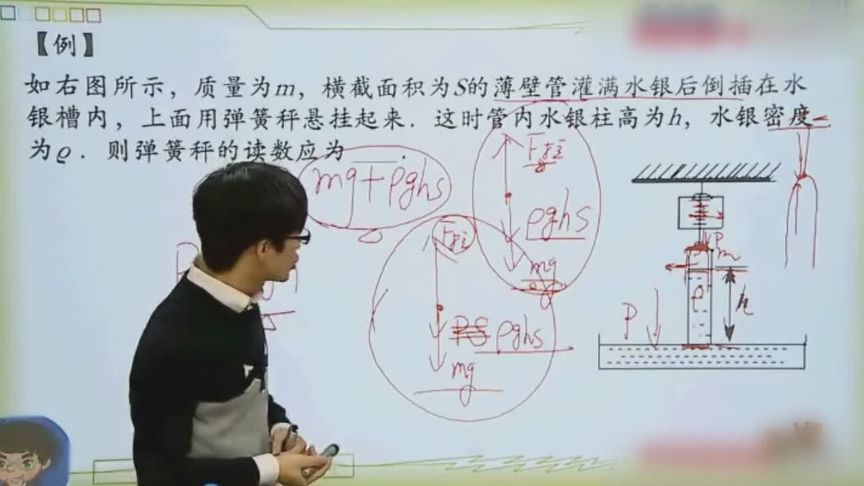 【例】
如右图所示，质量为m，横截面积为S的薄壁管灌满水银后倒插在水
银槽内，上面用弹簧秤悬挂起来．这时管内水银柱高为h，水银密度
为ρ．则弹簧秤的读数应为
mg+ρghs
F拉
ρghs
mg
F拉
ρghs
mg
P
m
h
P